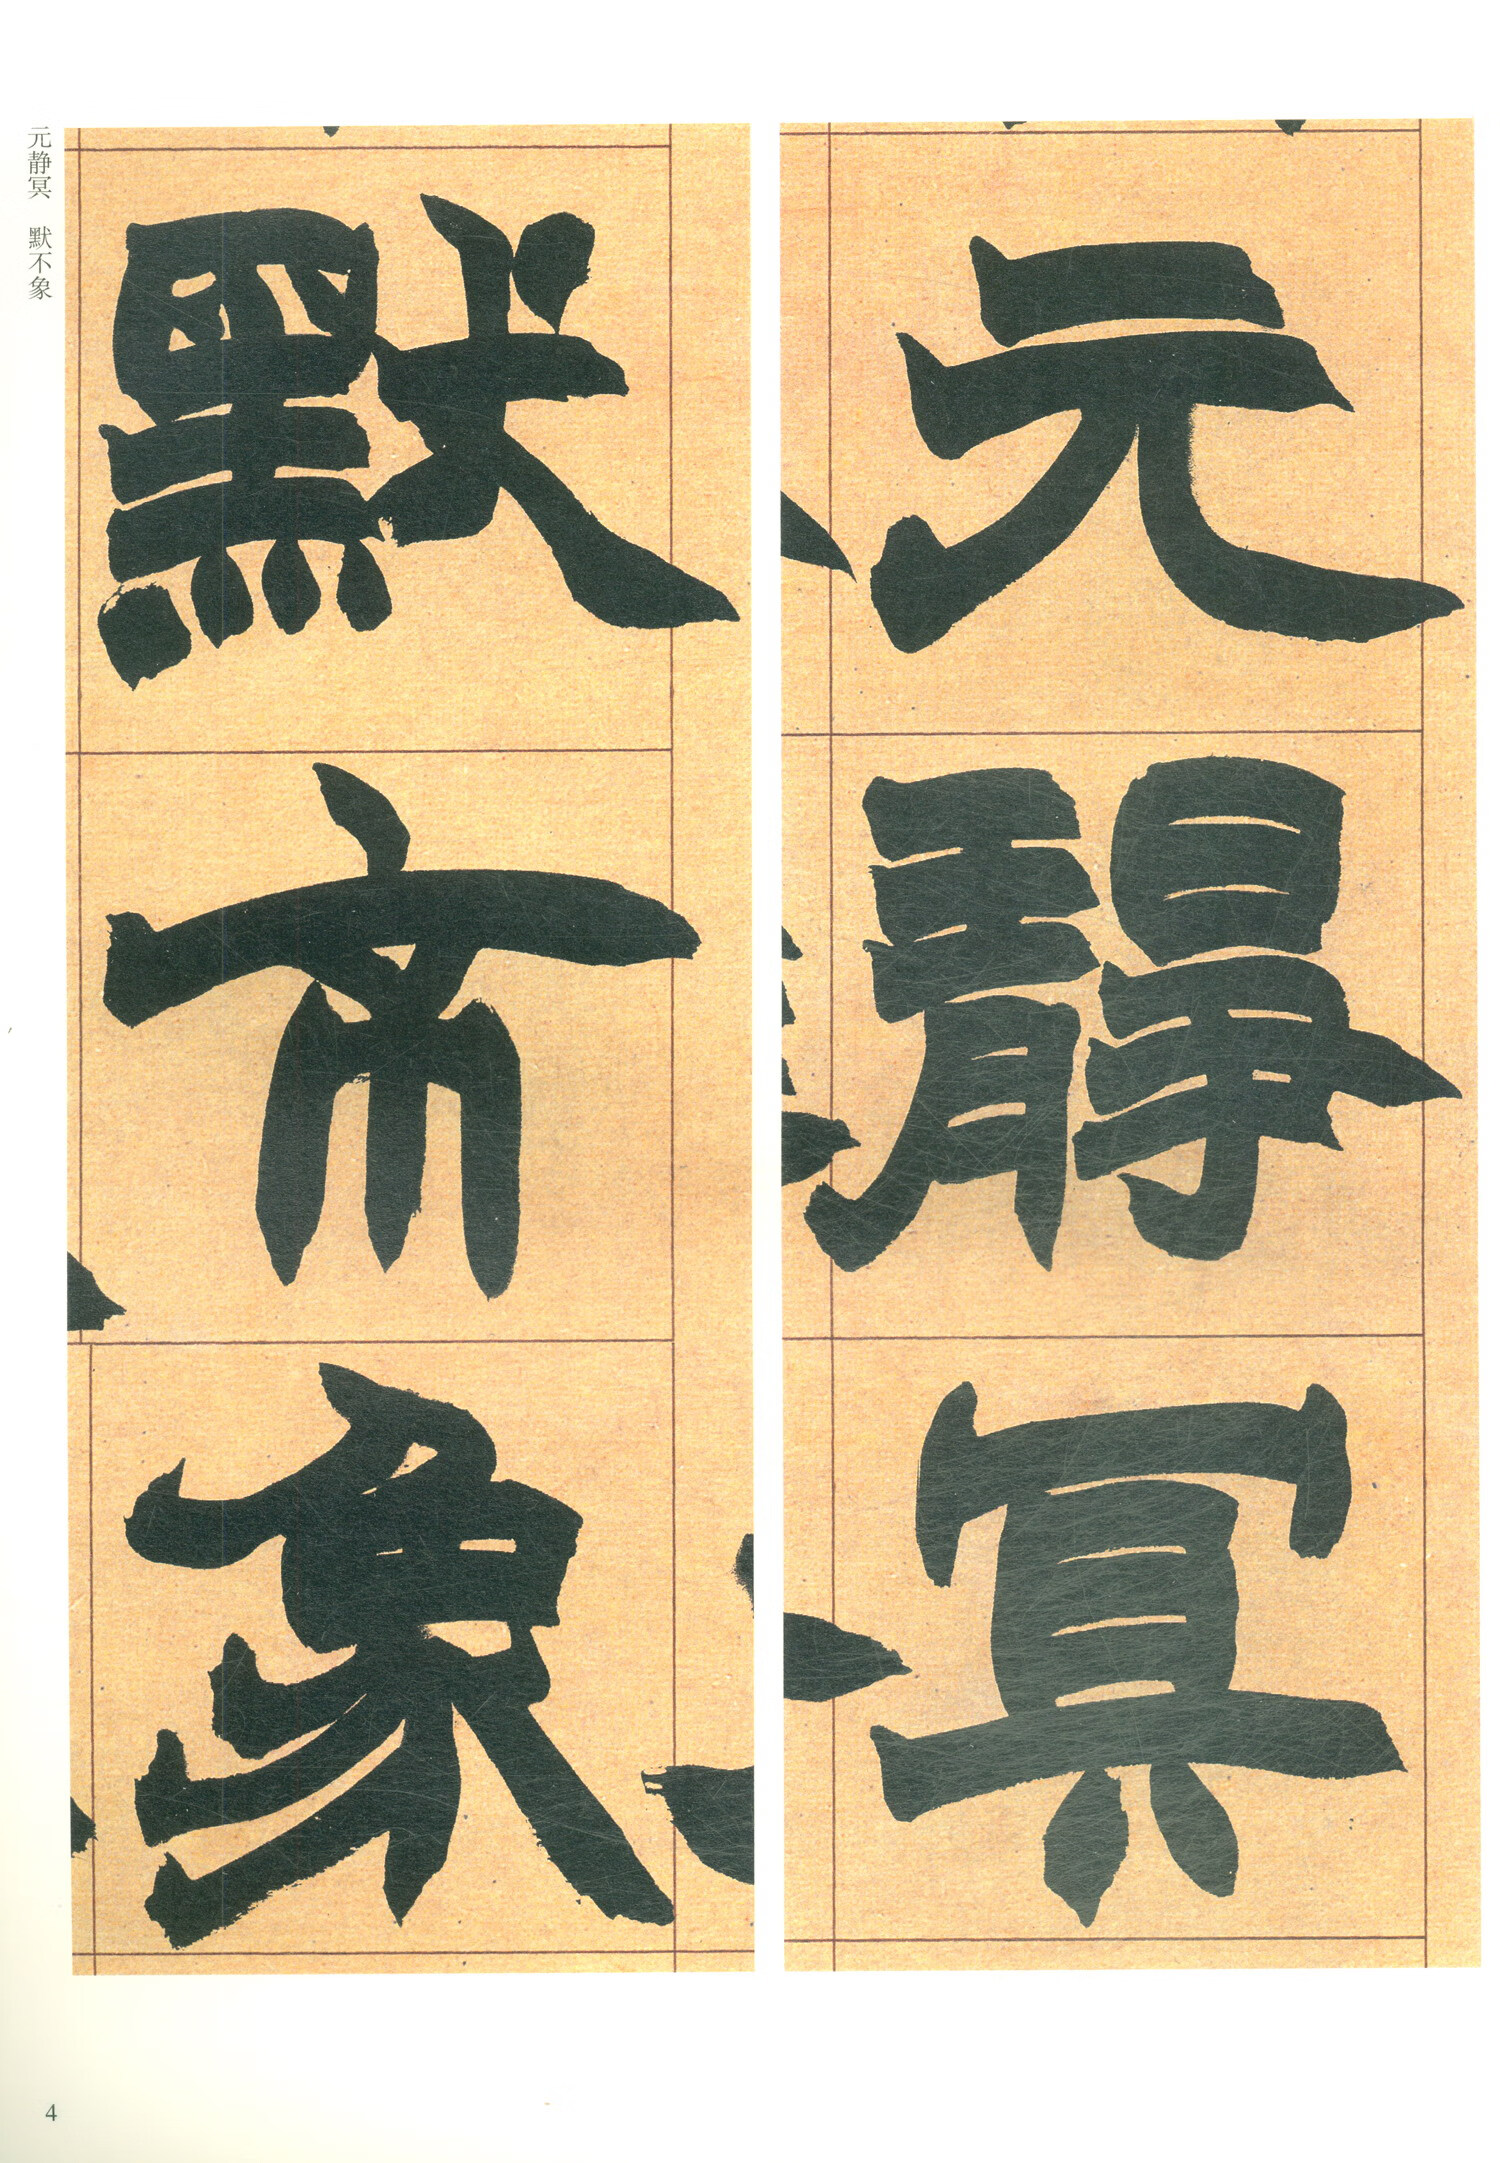 元靜冥
默不象
元静冥 默不象
4